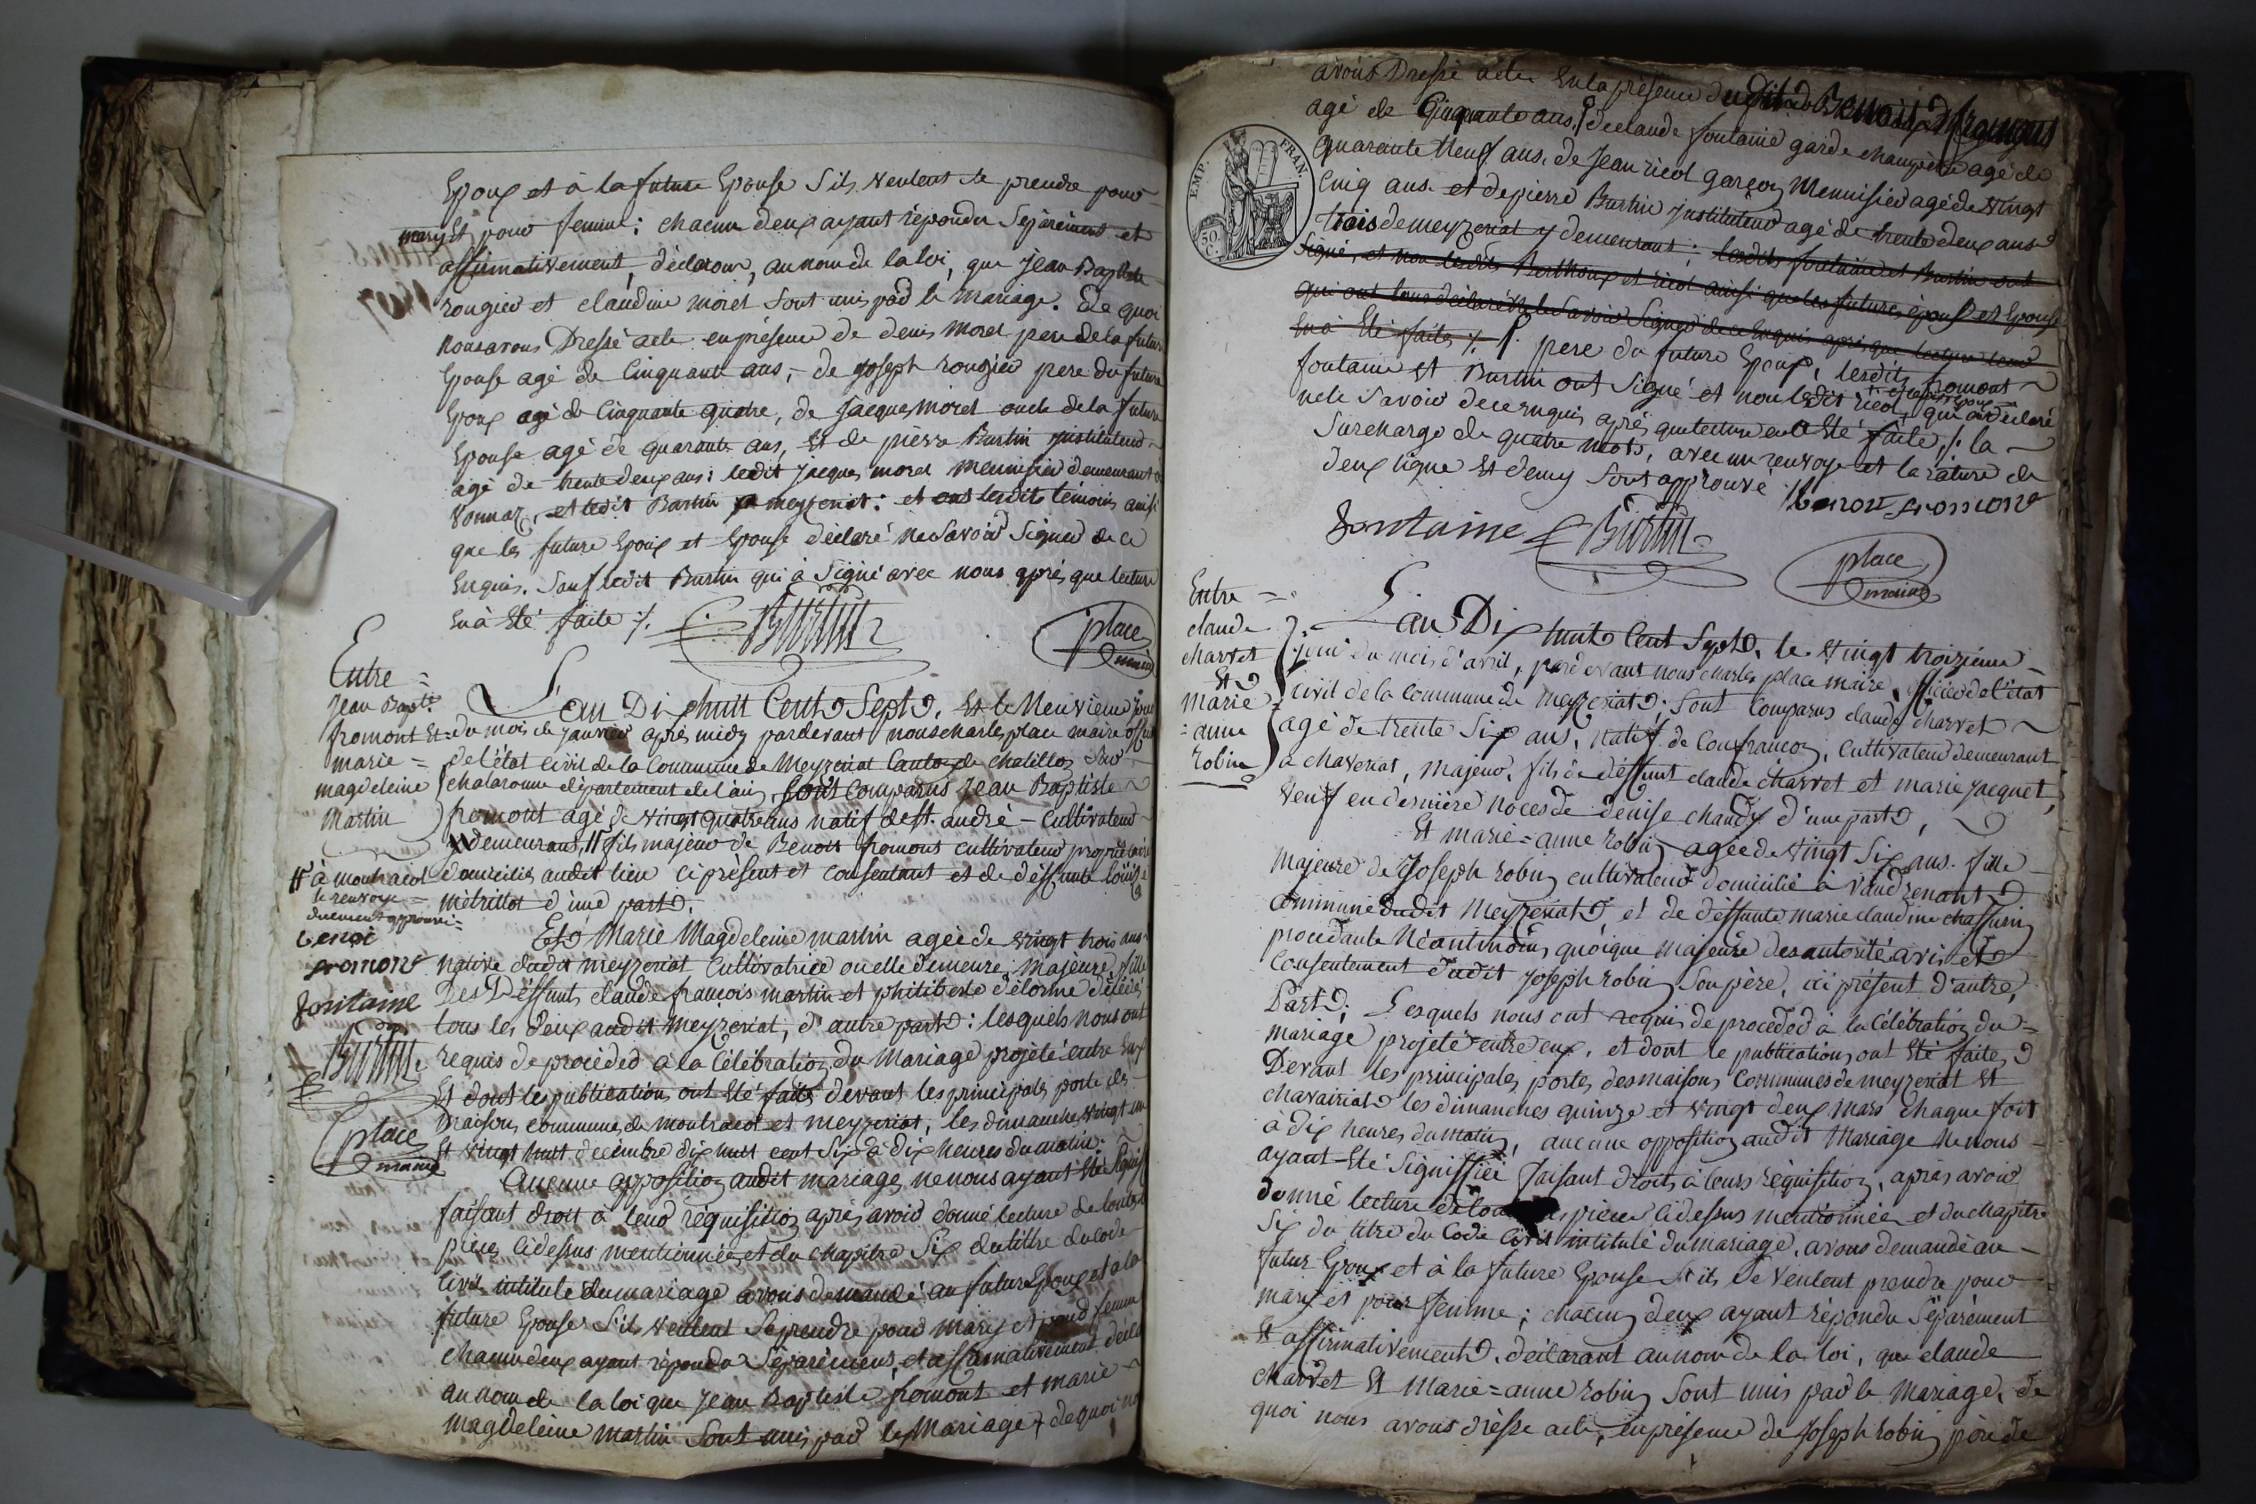 Epoux et à la future Epouse s'ils veulent se prendre pour
mary et pour femme; chacun deux ayant répondu Séparément et
affirmativement, déclarons, au nom de la loi, que Jean Baptiste
rougier et claudine morel sont unis par le mariage. De quoi
nous avons Dressé acte en présence de denis Morel pere de la future
Epouse agé de Cinquante ans, de Joseph rougier pere du future
Epoux agé de Cinquante quatre, de Jacques morel oncle de la future
Epouse agé de quarante ans, et de pierre Burtin instituteur
agé de trente deux ans: ledit Jacques morel Menuisier demeurant à
vonnaz, et ledit Burtin a meyzeriat: et ont lesdits témoins ainsi
que les future Epoux et Epouse déclaré ne savoir Signer de ce
Enquis. Sauf ledit Burtin qui à Signé avec nous après que lecture
en à Eté faite ./.
Burtin
place
maire
Entre =
Jean Bapte
fromont et
marie =
magdeleine
Martin
L'an Dix huit Cent Sept, Et le Neuvième jour
du mois de Janvier après midy pardevant nous charles place maire officier
de l'état Civil de la Commune de Meyzeriat Canton de chatillon sur
chalaronne département de l'ain, sont comparus Jean Baptiste
fromont agé de vingt quatre ans natif de st. andré - Cultivateur
y demeurant, # fils majeur de Benoit fromont cultivateur propriétaire
domicilié audit lieu ci présent et consentant et de déffunte Louise
métrillot d'une part.
# à montracol
le renvoye =
duement approuvé =
benoi
fromont
fontaine
Burtin
place
maire
Et Marie Magdeleine martin agée de vingt trois ans
native dudit meyzeriat Cultivatrice ou elle demeure, majeure, fille
Des Déffunts claude françois martin et philiberte délorme décédés
tous les deux audit meyzeriat, d'autre part: lesquels nous ont
requis de procéder à la Célébration du Mariage projeté entre Eux
Et dont les publication ont Eté faite devant les principales porte des
maisons commune, de montracol et meyzeriat, les dimanches vingt un
Et vingt huit décembre dix huit cent Six à dix heures du matin.
Aucunne opposition audit mariage ne nous ayant Eté signif
faisant droit à leur réquisition après avoir donné lecture de toutes
pièces cidessus mentionnée et du chapitre Six du titre du code
Civil intitulé du mariage avons demandé au future Epoux et à la
future Epouse s'ils veulent Se prendre pour mary et pour femme
chacun deux ayant répondu Séparément, et affirmativement décla
au nom de la loi que Jean Baptiste fromont et marie
magdeleine martin sont unis par le Mariage, de quoi no
avons Dressé acte En la présence dudit Benoit fromont
agé de Cinquante ans, de claude fontaine garde champêtre agé de
quarante Neuf ans, de Jean ricol garçon Menuisier agé de vingt
Cinq ans et de pierre Burtin instituteur agé de trente deux ans
tous de meyzeriat y demeurant; lesdits fontaine et Burtin ont
Signé, et non lesdits Berthoux et ricol ainsi que les future époux et Epouse
qui ont tous déclaré ne le savoir Signer de ce Enquis après que lecture leur
en à Eté faite ./. pere du future Epoux, lesdits fromont
fontaine et Burtin ont Signé et non ledit ricol, qui ont déclaré
ne le savoir de ce enquis après que lecture en à Eté faite ./. la
Surcharge de quatre mots, avec un renvoye et la rature de
deux ligne et demy sont approuvé ./.
benoit fromont
fontaine
Burtin
place
maire
EMP. FRAN.
50 C.
Entre =
claude
charvet
Et
Marie
= anne
Robin
L'an Dix huit Cent Sept, le vingt troizième
jour du mois d'avril, pardevant nous charles place maire, officier de l'état
civil de la Commune de meyzeriat. Sont comparus claude charvet
agé de trente Six ans, natif de Confrançon, Cultivateur demeurant
à chaveriat, majeur, fils de déffunt claude charvet et marie jacquet,
veuf en dernière noces de denise chandy d'une part,
Et marie = anne Robin agée de vingt Six ans. fille
Majeure de Joseph robin cultivateur domicilié à Vaudrenant
commune dudit Meyzeriat, et de déffunte marie claudine chaffurin
procédante Néantmoins quoique majeure des autorité avis et
Consentement dudit Joseph robin Son père, ici présent d'autre,
Part; Lesquels nous ont requis de procéder à la Célébration du =
mariage projeté entre eux, et dont le publication ont Eté faites
Devant les principales portes des maisons Communes de meyzeriat et
chavairiat les dimanches quinze et vingt deux mars chaque fois
à dix heures du matin, aucune opposition audit Mariage Ne nous
ayant Eté Signiffiée faisant droits à leurs réquisition, après avoir
donné lecture de pièces cidessus mentionnée et du chapitre
Six du titre du Code Civil intitulé du mariage, avons demandé au
futur Epoux et à la future Epouse s'ils se veulent prendre pour
mary et pour femme; chacun deux ayant répondu Séparément
Et affirmativement. déclarant au nom de la loi, que claude
charvet Et Marie = anne robin sont unis par le Mariage, de
quoi nous avons drèsse acte, en présence de Joseph robin père de